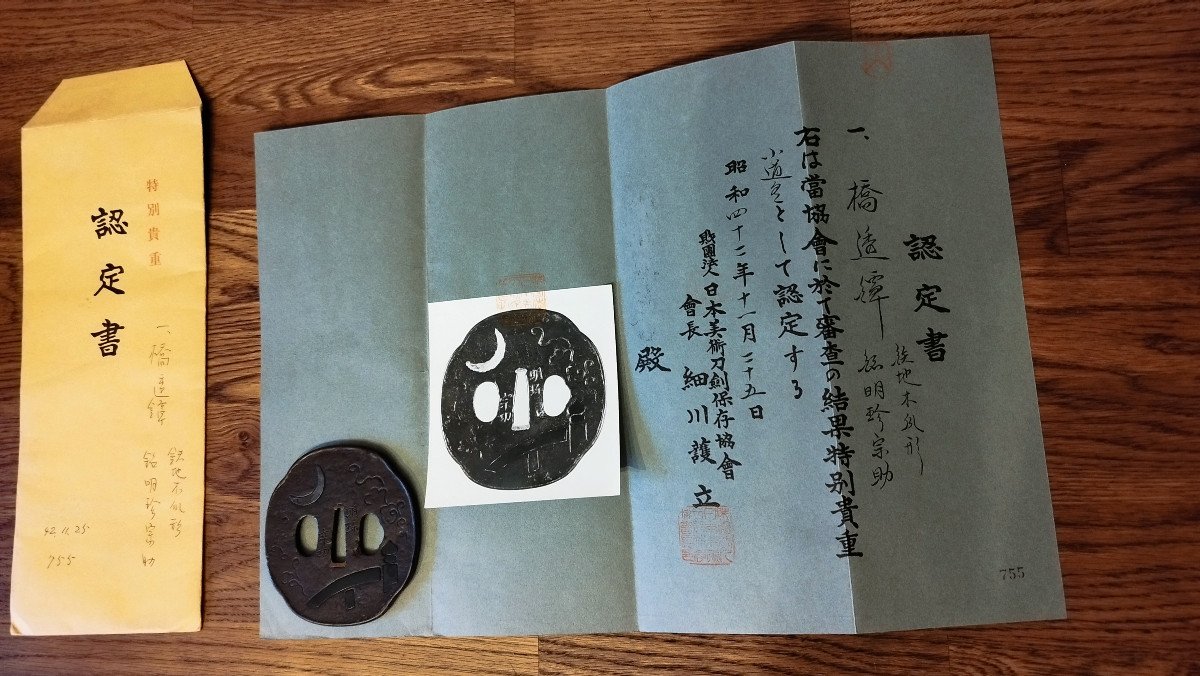 認定書
一、橋透鐔 鉄地木瓜形
銘明珍宗助
右は當協會に於て審査の結果特別貴重
小道具として認定する
昭和四十二年十一月二十五日
財團法人日本美術刀劍保存協會
會長 細川護立
殿
755
明珍
宗助
特別貴重
認定書
一、橋透鐔
鉄地木瓜形
銘明珍宗助
42.11.25
755